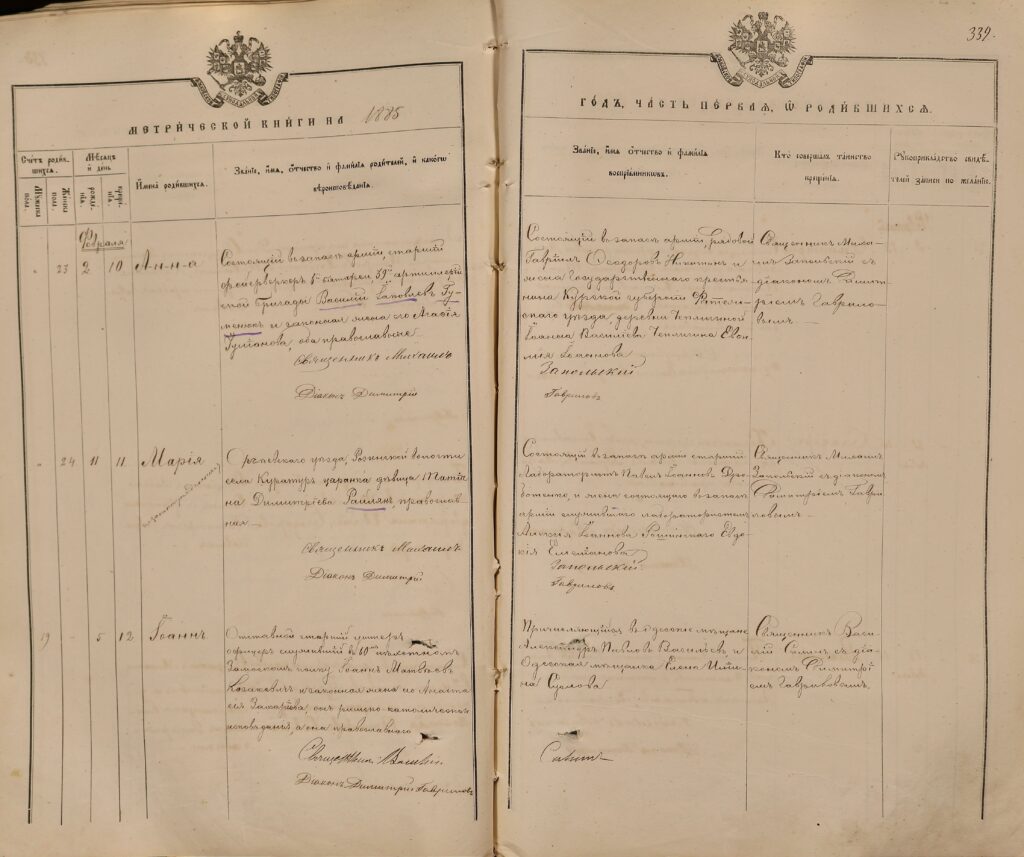 339.
МЕТРИ́ЧЕСКОЙ КНИ́ГИ НА 1885
ГО́ДЪ, ЧА́СТЬ ПЕ́РВАЯ, Ѡ РОДИ́ВШИХСЯ.
Счётъ роди́в-
шихся.
Мѣсяцъ
и день
Мужеска
пол.
Женска
пол.
рожде-
нія.
креще-
нія.
Имена родившихся.
Званіе, имя, отчество и фамилія родителей, и какого
вѣроисповѣданія.
Званіе, имя отчество и фамилія
воспріемниковъ.
Кто совершалъ таинство
крещенія.
Рукоприкладство свидѣ-
телей записи по желанію.
Февраля
23 2 10 Анна
Состоящій въ запасѣ арміи, старшій
фейерверкеръ 5й батареи, 39й артиллерій
ской бригады Василій Іаковлевъ Гу-
менюкъ и законная жена его Агафія
оба православные
Священникъ Михаилъ
Діаконъ Димитрій
Состоящій въ запасѣ арміи, рядовой
Гавріилъ Ѳеодоровъ Никитинъ и
жена Государственнаго крестья
нина Курской губерніи
скаго уѣзда, деревни
Іоанна Васильева Евѳи-
мія Іоаннова
Запольскій
Гавриловъ
Священникъ Миха-
илъ Запольскій съ
діакономъ Димит-
ріемъ Гаврило-
вымъ
24 11 11 Марія
незаконнорожденная
Оргѣевскаго уѣзда, волости
села Куратуръ царанка дѣвица Татія
на Димитріева Райлянъ, православ-
ная
Священникъ Михаилъ
Діаконъ Димитрій
Состоящій въ запасѣ арміи старшій
лаборатористъ Павелъ Іоанновъ
и жена состоящаго въ запасѣ
арміи служившаго лаборатористомъ
Алексія Іоаннова Евдо-
кія Емеліанова
Запольскій
Гавриловъ
Священникъ Михаилъ
Запольскій съ діакономъ
Димитріемъ Гаври
ловымъ
19 - 5 12 Іоаннъ
Отставной старшій унтеръ
офицеръ служившій въ 60мъ пѣхотномъ
Замосскомъ полку Іоаннъ Матвѣевъ
Козакевичъ и законная жена его Анаста
сія Захаріева, онъ римско-католическаго
исповѣданія, а она православнаго
Священникъ Василій
Діаконъ Димитрій Гавриловъ
Причисляющійся въ одесскіе мѣщане
Александръ Павловъ Васильевъ и
Одесская мѣщанка Елена
на Суслова
Священникъ Васи-
лій съ діа-
кономъ Димитрі
емъ Гавриловымъ.